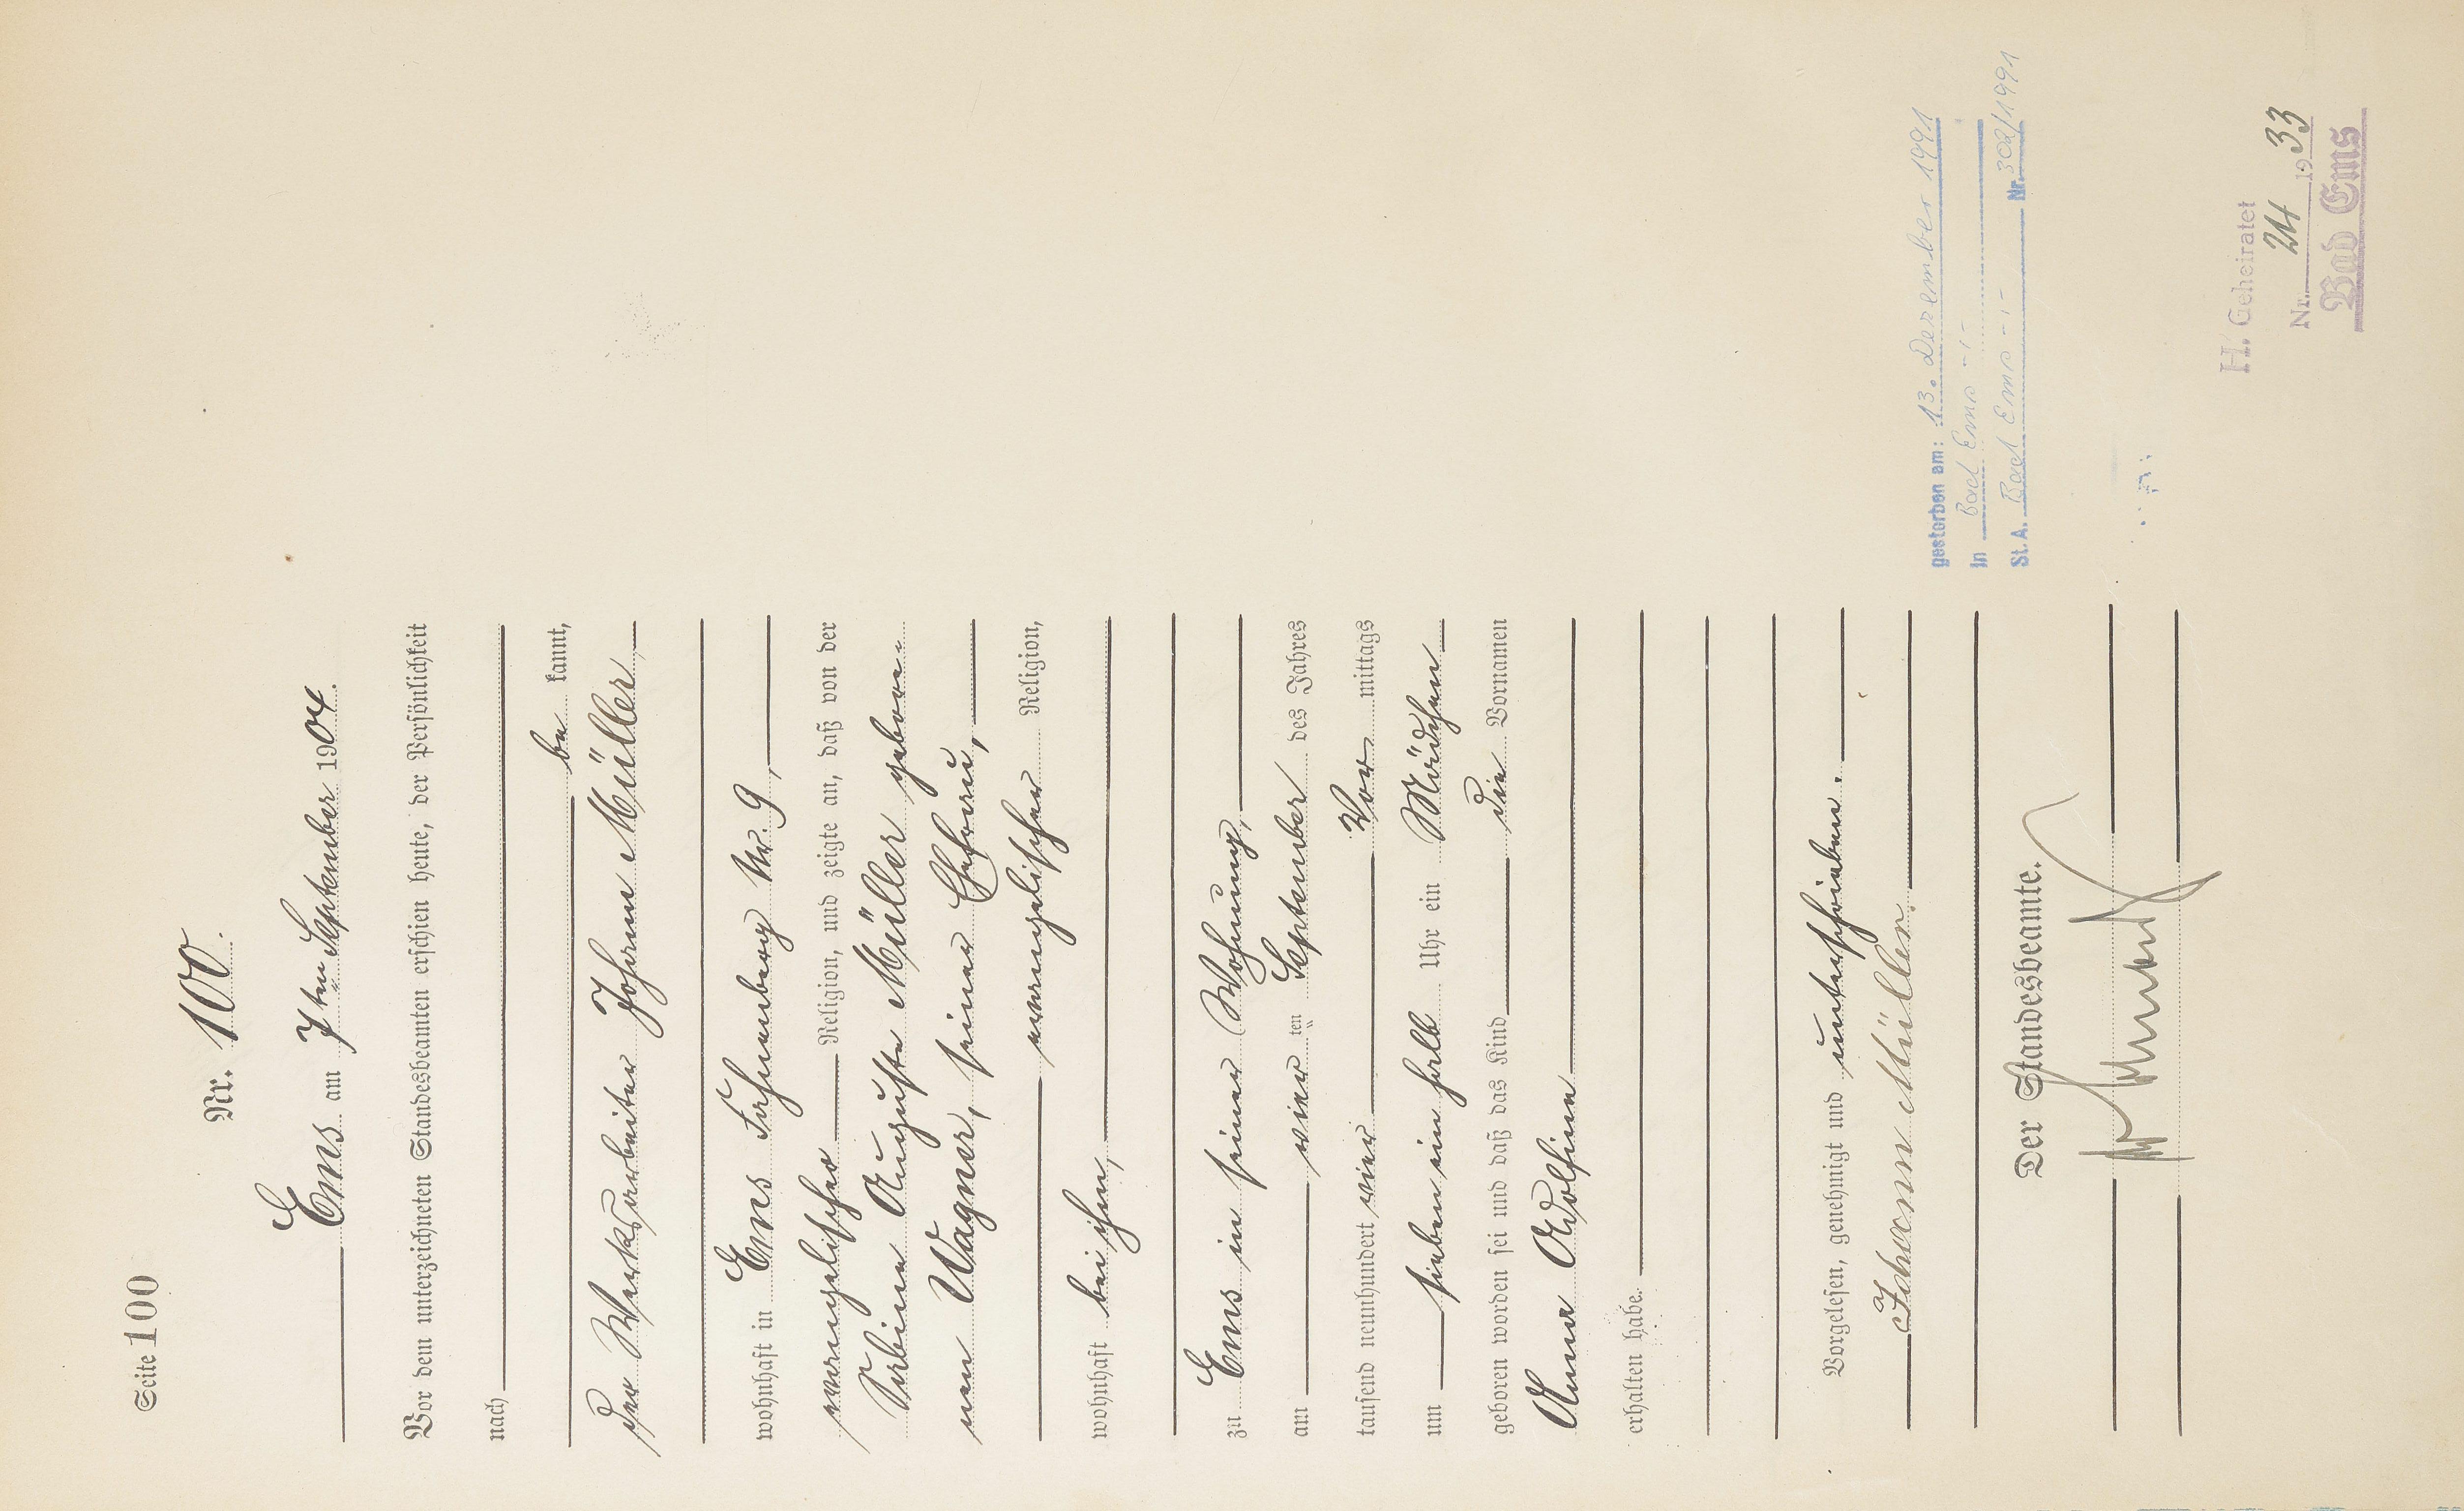 Seite 100
Nr. 100.
Ems am 7ten September 1904.
Vor dem unterzeichneten Standesbeamten erschien heute, der Persönlichkeit
nach
be kannt,
der Werksarbeiter Johann Müller
wohnhaft in Ems Fachenberg Nr. 9,
evangelischer Religion, und zeigte an, daß von der
Sabine Auguste Müller gebore¬
nen Wagner, seiner Ehefrau,
evangelischer Religion,
wohnhaft bei ihm,
zu Ems in seiner Wohnung,
am vier ten September des Jahres
tausend neunhundert vier Vor mittags
um sieben ein halb Uhr ein Mädchen
geboren worden sei und daß das Kind die Vornamen
Anna Adolfine
erhalten habe.
Vorgelesen, genehmigt und unterschrieben.
Johann Müller.
Der Standesbeamte.
gestorben am: 13. Dezember 1991
in Bad Ems -,-
St. A. Bad Ems -,- Nr. 302/1991
H. Geheiratet
Nr. 24 1933
Bad Ems